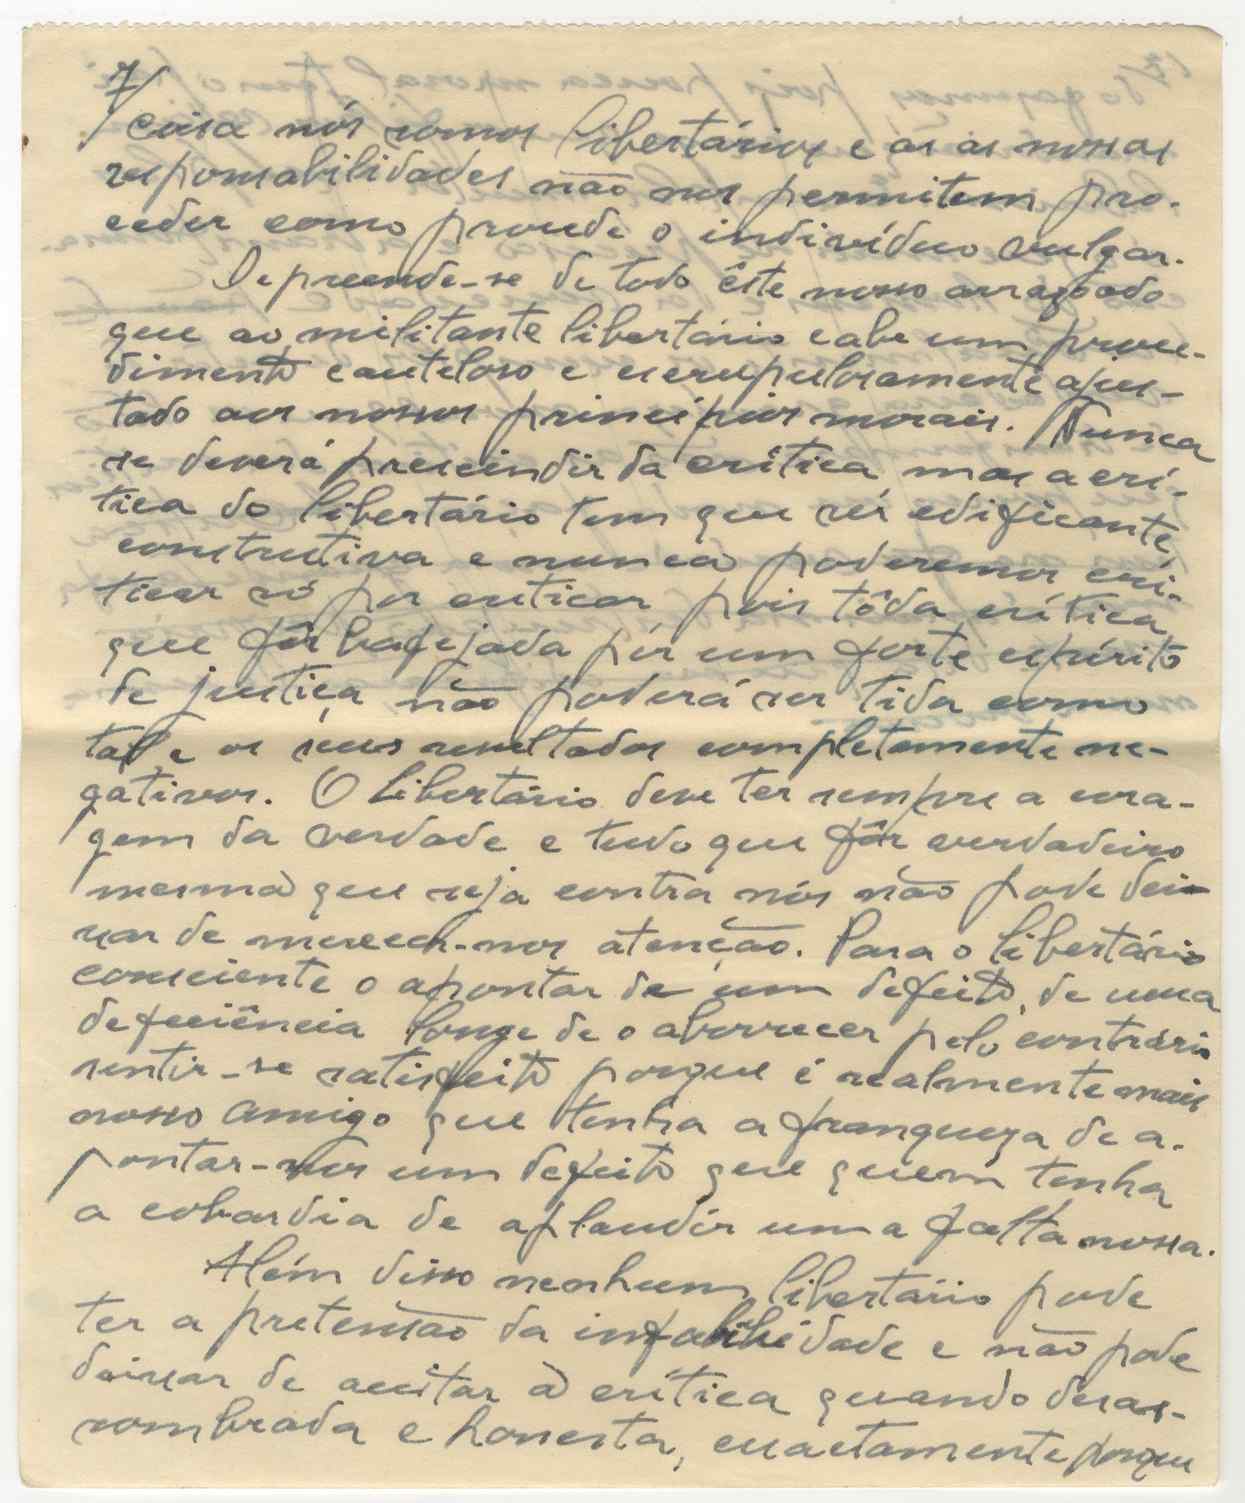 7
coisa nós somos libertários e as as nossas
responsabilidades não nos permitem pro-
ceder como procede o indivíduo vulgar.
Depreende-se de todo êste nosso arrazoado
que ao militante libertário cabe um proce-
dimento cauteloso e escrupulosamente ajus-
tado aos nossos princípios morais. Nunca
se deverá prescindir da crítica, mas a crí-
tica do libertário tem que ser edificante,
construtiva e nunca poderemos cri-
ticar só por criticar pois tôda crítica
que fôr bafejada por um forte espírito
de justiça não poderá ser tida como
tal e os seus resultados completamente ne-
gativos. O libertário deve ter sempre a cora-
gem da verdade e tudo que fôr verdadeiro
mesmo que seja contra nós não pode dei-
xar de merecer-nos atenção. Para o libertário
consciente o apontar de um defeito, de uma
deficiência longe de o aborrecer pelo contrário
sentir-se satisfeito porque é realmente mais
nosso amigo que tenha a franqueza de a-
pontar-nos um defeito que quem tenha
a cobardia de aplaudir uma falta nossa.
Além disso nenhum libertário pode
ter a pretensão da infalibilidade e não pode
deixar de aceitar a crítica quando desas-
sombrada e honesta, exactamente porque